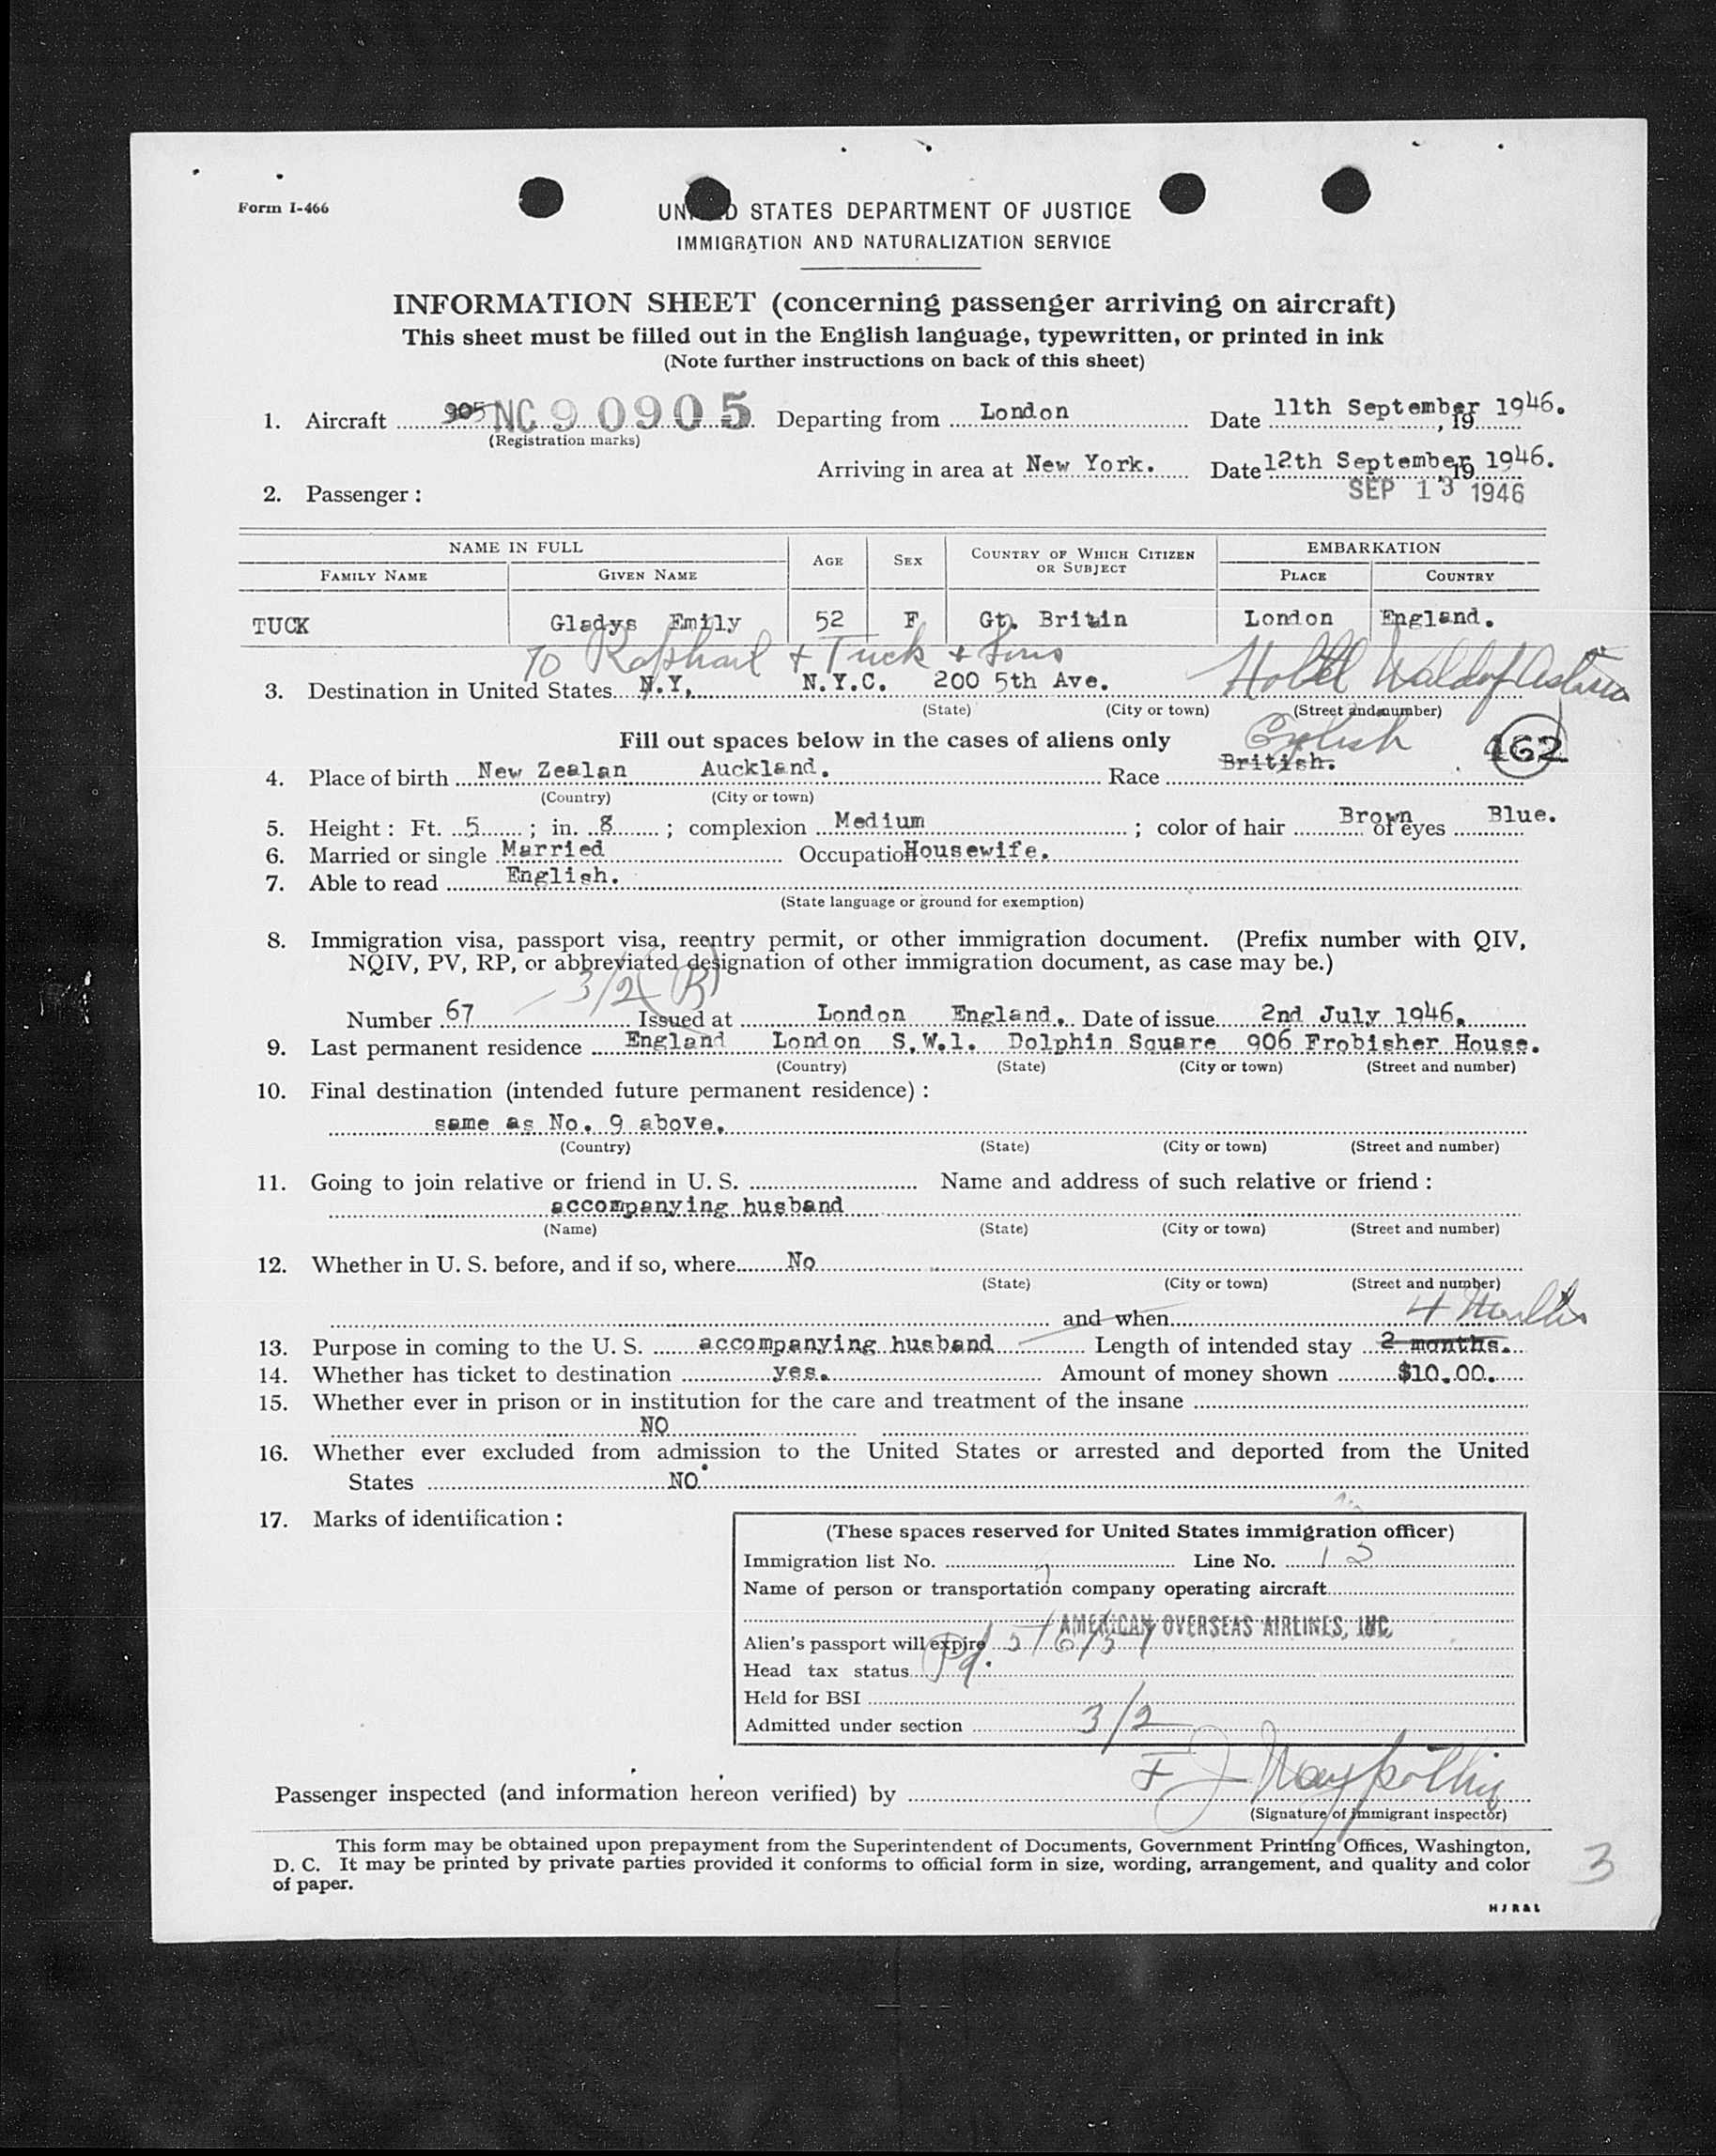 Form I-466
UNITED STATES DEPARTMENT OF JUSTICE
IMMIGRATION AND NATURALIZATION SERVICE
INFORMATION SHEET (concerning passenger arriving on aircraft)
This sheet must be filled out in the English language, typewritten, or printed in ink
(Note further instructions on back of this sheet)
1. Aircraft 905 NC 90905 Departing from London Date 11th September 1946. , 19
(Registration marks)
Arriving in area at New York. Date 12th September 1946. , 19
2. Passenger : SEP 13 1946
NAME IN FULL AGE SEX COUNTRY OF WHICH CITIZEN OR SUBJECT EMBARKATION
FAMILY NAME GIVEN NAME PLACE COUNTRY
TUCK Gladys Emily 52 F Gt. Britin London England.
To Raphael + Tuck + Sons Hotel Waldorf Astoria
3. Destination in United States N.Y. N.Y.C. 200 5th Ave.
(State) (City or town) (Street and number)
Fill out spaces below in the cases of aliens only English 462
4. Place of birth New Zealan Auckland. Race British.
(Country) (City or town)
5. Height : Ft. 5 ; in. 8 ; complexion Medium ; color of hair Brown of eyes Blue.
6. Married or single Married Occupation Housewife.
7. Able to read English.
(State language or ground for exemption)
8. Immigration visa, passport visa, reentry permit, or other immigration document. (Prefix number with QIV,
NQIV, PV, RP, or abbreviated designation of other immigration document, as case may be.)
3/2 (B)
Number 67 Issued at London England. Date of issue 2nd July 1946.
9. Last permanent residence England London S.W.1. Dolphin Square 906 Frobisher House.
(Country) (State) (City or town) (Street and number)
10. Final destination (intended future permanent residence) :
same as No. 9 above.
(Country) (State) (City or town) (Street and number)
11. Going to join relative or friend in U. S. Name and address of such relative or friend :
accompanying husband
(Name) (State) (City or town) (Street and number)
12. Whether in U. S. before, and if so, where No
(State) (City or town) (Street and number)
and when 4 Months
13. Purpose in coming to the U. S. accompanying husband Length of intended stay 2 months.
14. Whether has ticket to destination yes. Amount of money shown $10.00.
15. Whether ever in prison or in institution for the care and treatment of the insane
NO
16. Whether ever excluded from admission to the United States or arrested and deported from the United
States NO
17. Marks of identification :
(These spaces reserved for United States immigration officer)
Immigration list No. Line No. 12
Name of person or transportation company operating aircraft
AMERICAN OVERSEAS AIRLINES, INC.
Alien's passport will expire 5/6/51
Head tax status Pd.
Held for BSI
Admitted under section 3/2
Passenger inspected (and information hereon verified) by F J
(Signature of immigrant inspector)
This form may be obtained upon prepayment from the Superintendent of Documents, Government Printing Offices, Washington,
D. C. It may be printed by private parties provided it conforms to official form in size, wording, arrangement, and quality and color
of paper.
3
HJR&L